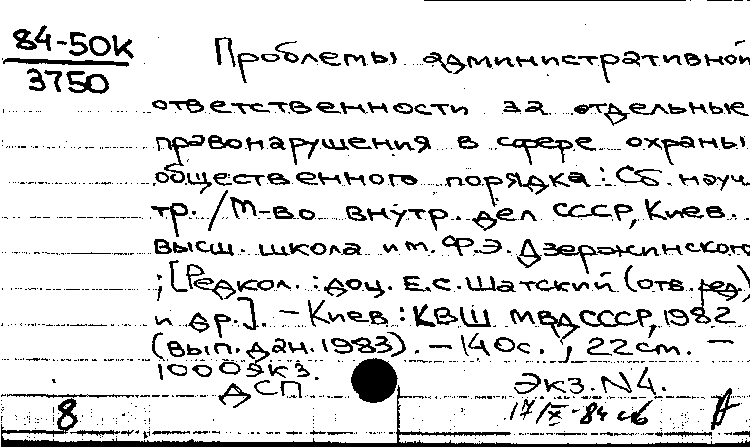 84-50К
3750
Проблемы административной
ответственности за отдельные
правонарушения в сфере охраны
общественного порядка : Сб. науч.
тр. / М-во внутр. дел СССР, Киев.
высш. школа им. Ф.Э. Дзержинского
; [Редкол. : доц. Е.С. Шатский (отв. ред.)
и др.]. – Киев : КВШ МВД СССР, 1982
(вып. дан. 1983). – 140с. ; 22см. –
1000экз.
ДСП
Экз. N4.
8